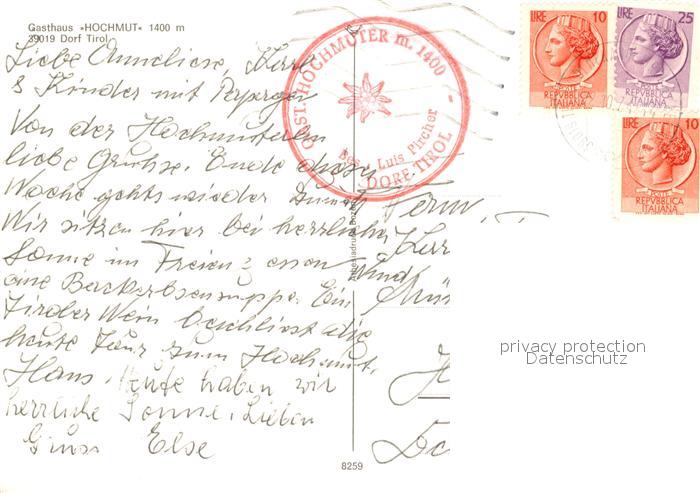 Gasthaus »HOCHMUT« 1400 m
39019 Dorf Tirol
Liebe Anneliese, Kurt
& Kinder mit
Von der Hochmuterin
liebe Grüsse. Ende dieser
Woche gehts wieder
Wir sitzen hier bei herrlicher
Sonne im Freien & essen
eine Backerbsensuppe. Ein
Tiroler Wein beschliest die
heute Tour zum Hochmut.
Hans. Heute haben wir
herrliche Sonne. Lieben
Gruss Else
GASTH. HOCHMUTER m. 1400
Bes. Luis Pircher
DORF TIROL
LIRE 10
POSTE
REPVBBLICA
ITALIANA
LIRE 25
POSTE
REPVBBLICA
ITALIANA
LIRE 10
POSTE
REPVBBLICA
ITALIANA
Fam.
8259
privacy protection
Datenschutz